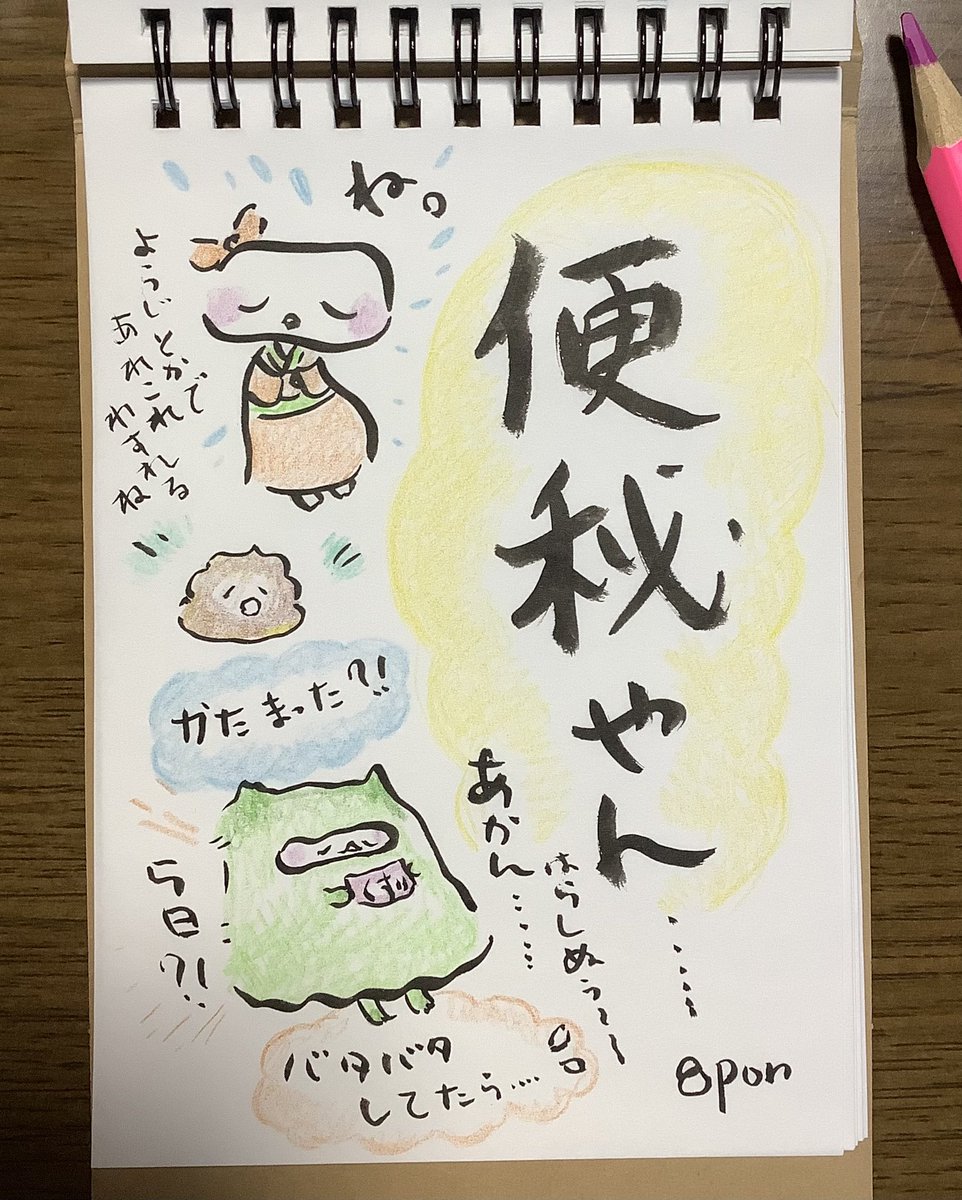 便秘やん
……
ね。
ようじとかで
あれこれ
わすれる
ね
かたまった?!
あかん……
はらしぬぅ~~
くすり
5日?!
バタバタ
してたら…
8pon